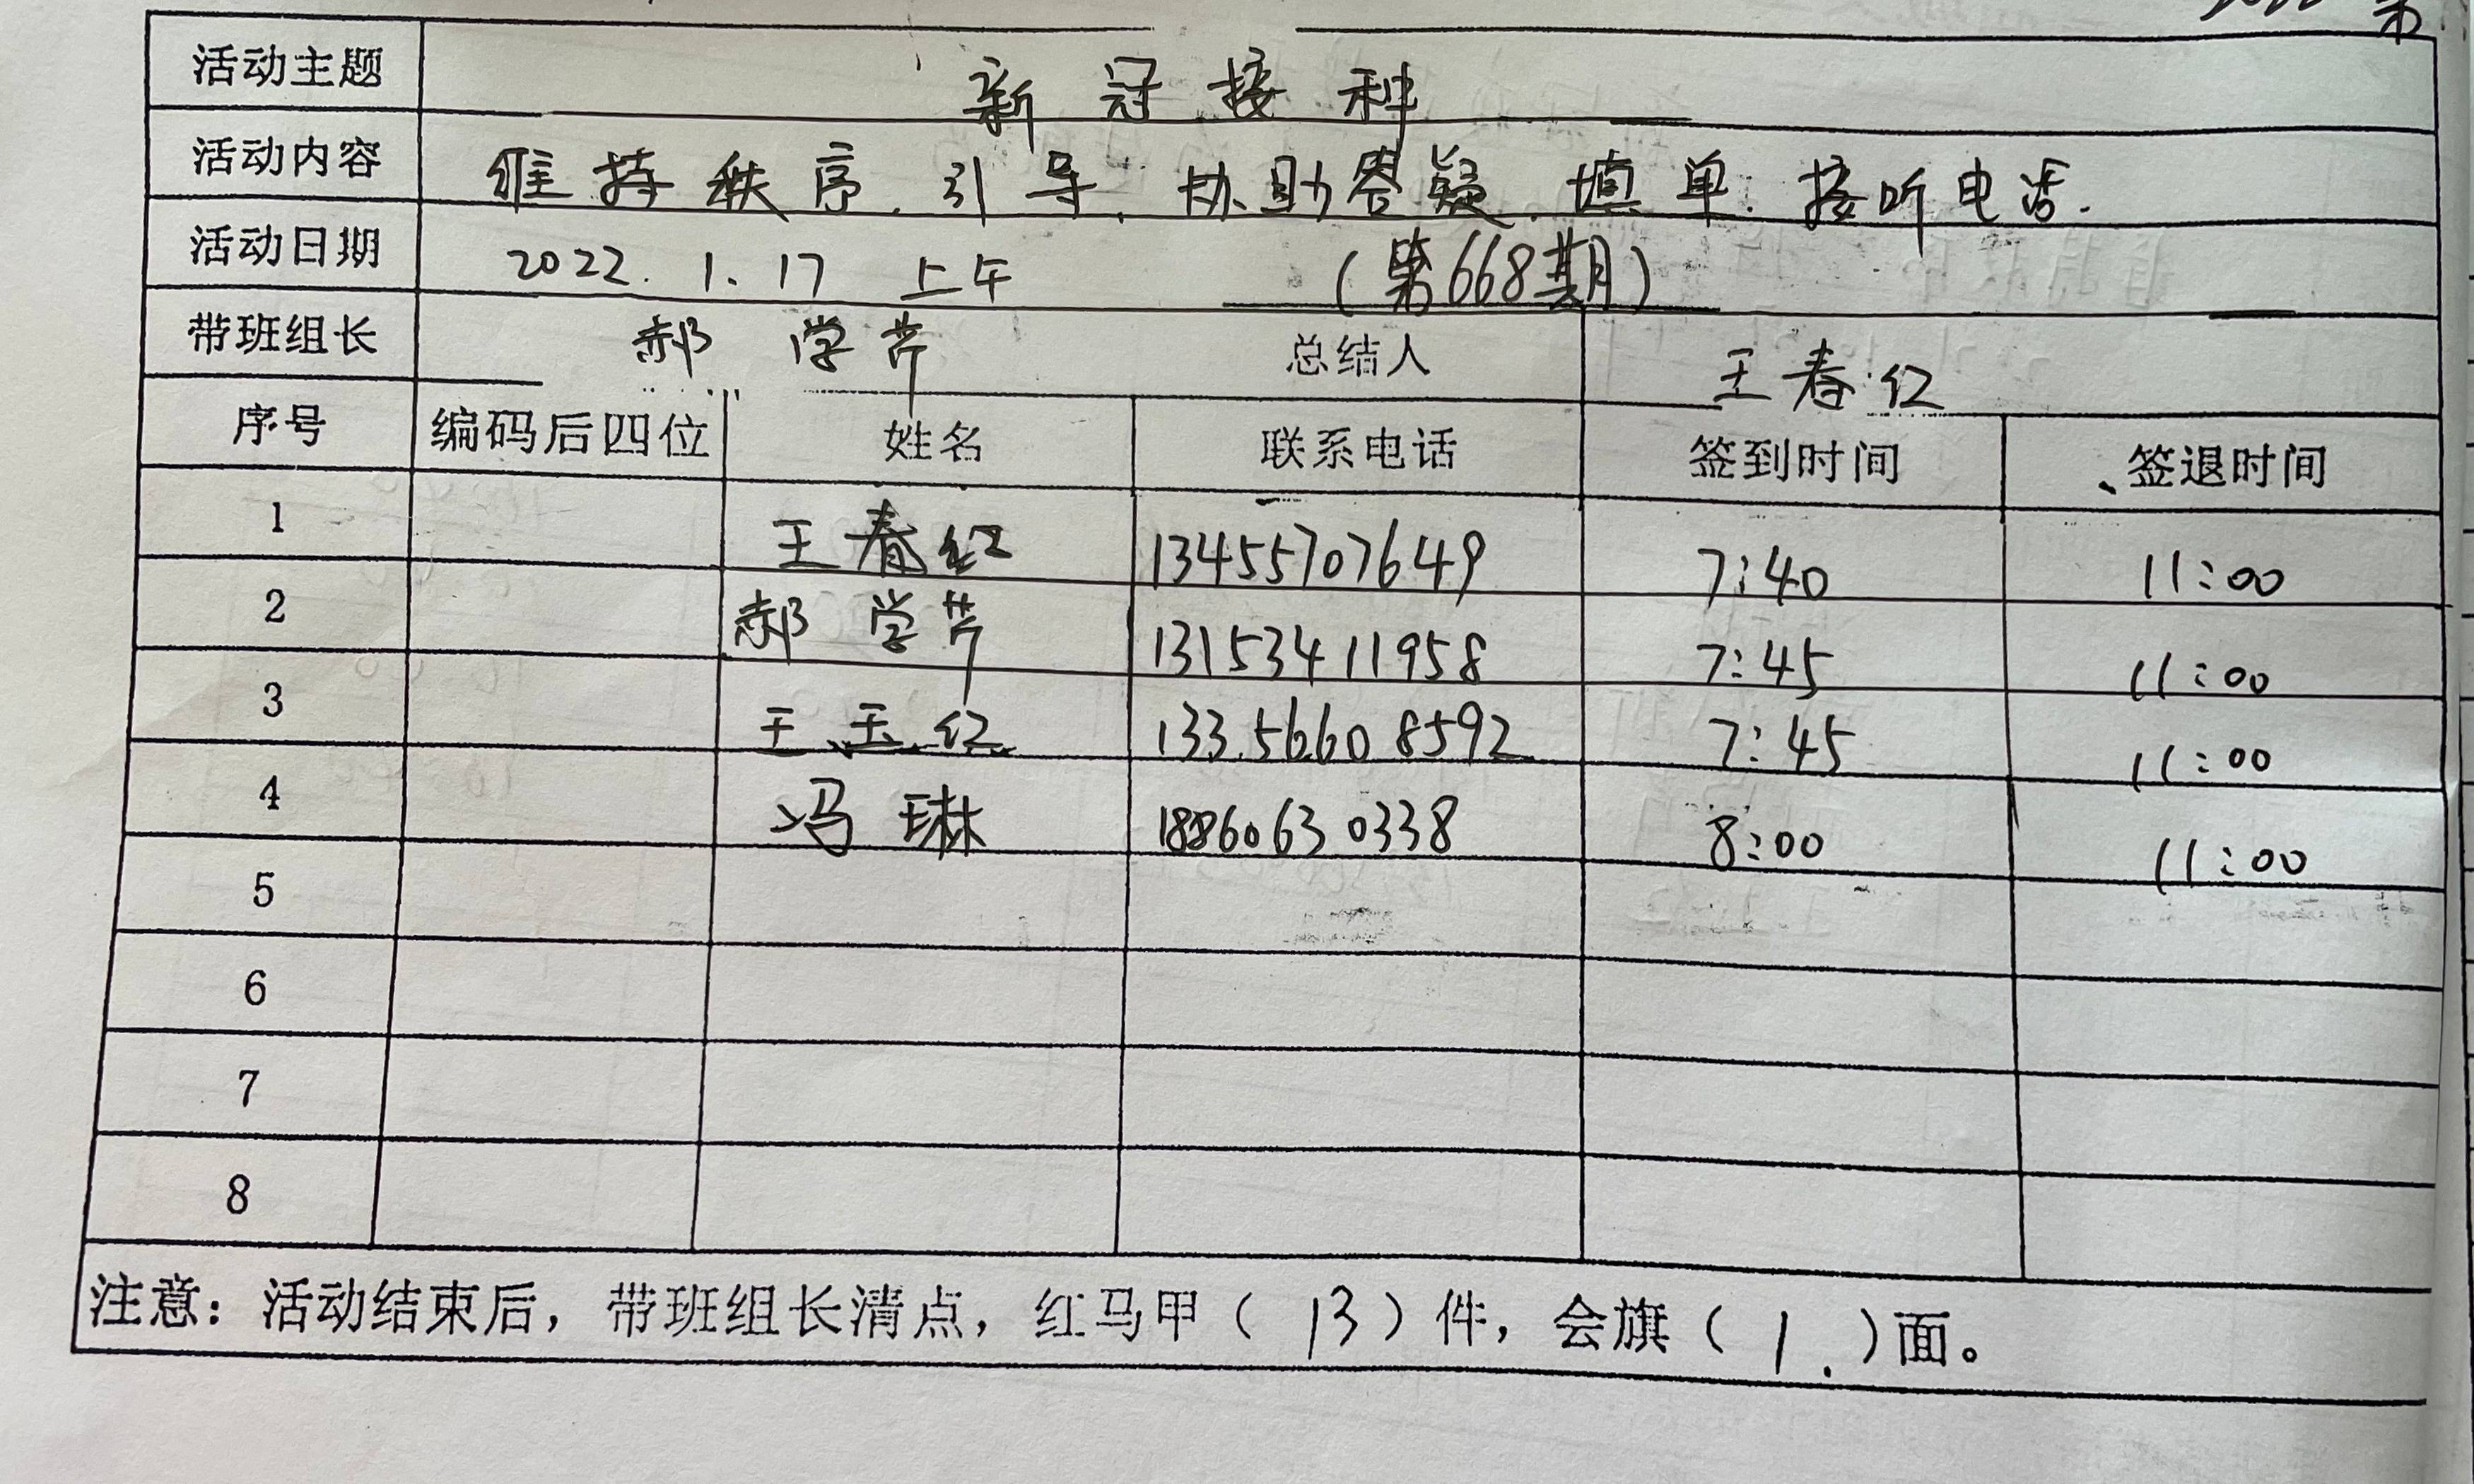 活动主题 新冠接种
活动内容 维持秩序.引导.协助答疑.填单.接听电话.
活动日期 2022.1.17 上午 (第668期)
带班组长 郝学芹 总结人 王春红
序号 编码后四位 姓名 联系电话 签到时间 签退时间
1 王春红 13455707649 7:40 11:00
2 郝学芹 13153411958 7:45 11:00
3 王玉红 133.56608592 7:45 11:00
4 冯琳 18860630338 8:00 11:00
5
6
7
8
注意：活动结束后，带班组长清点，红马甲（13）件，会旗（1.）面。